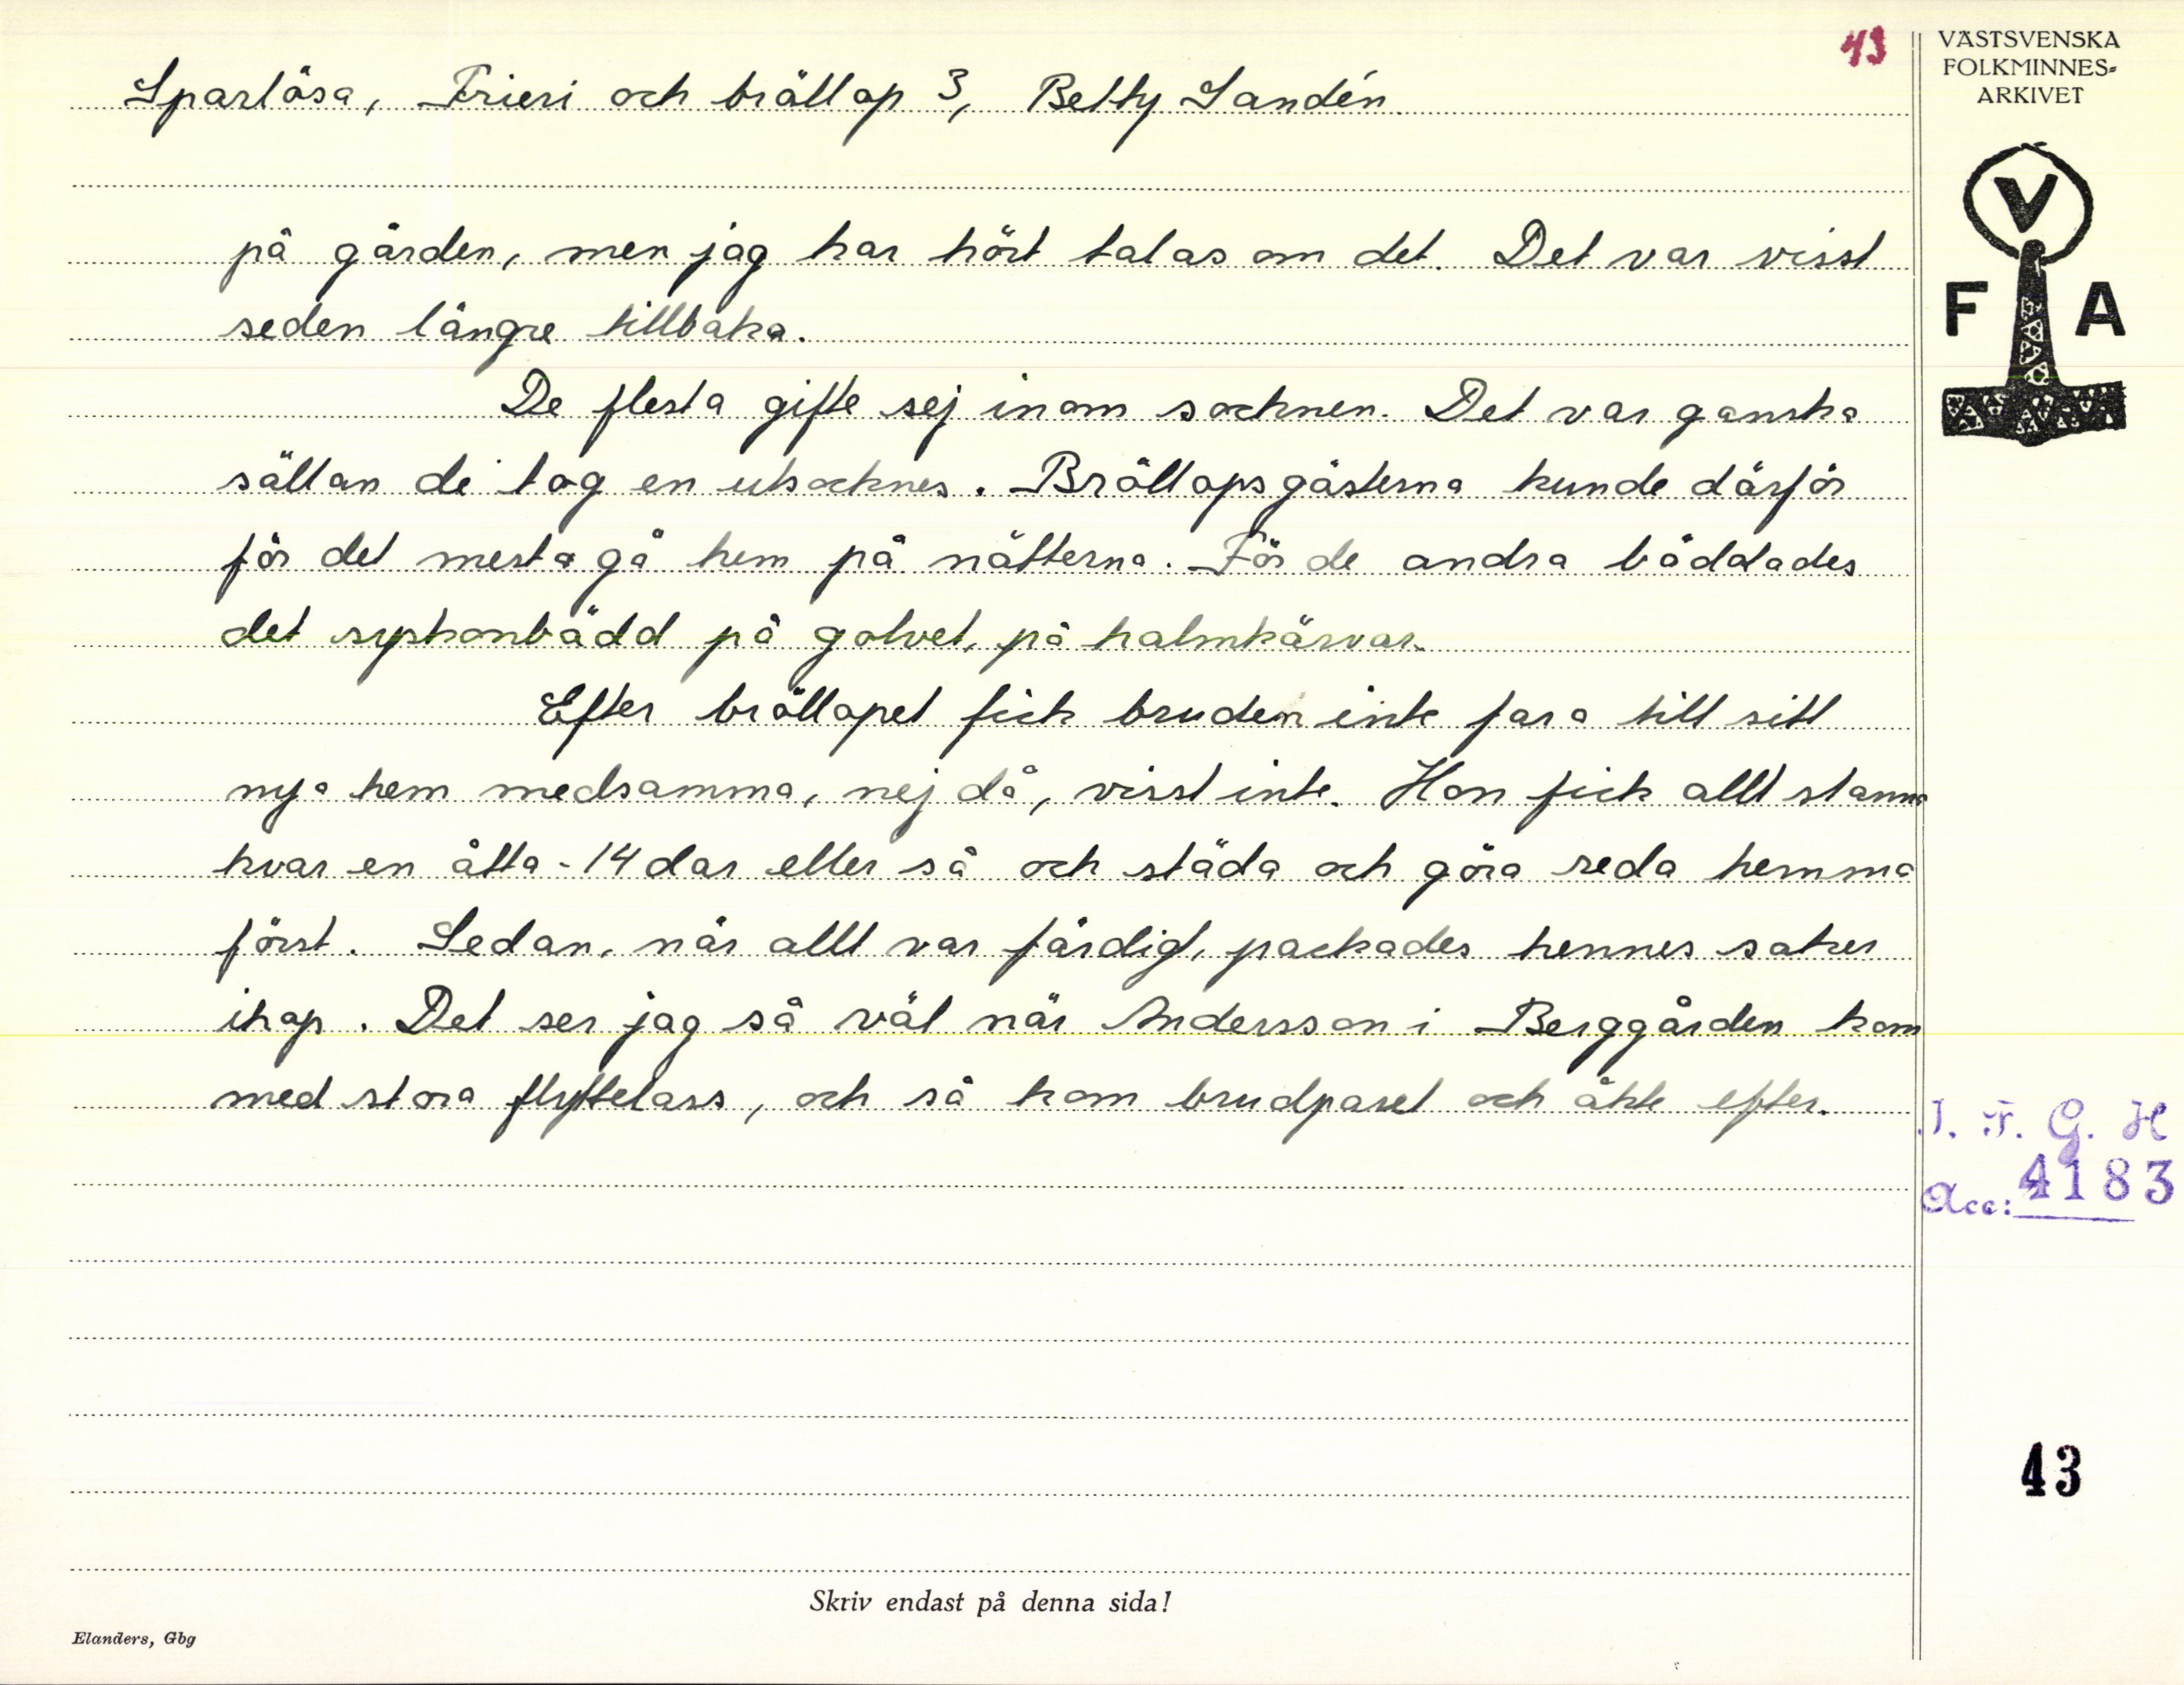 43
Sparlösa, Frieri och bröllop 3, Betty Sandén.
på gården, men jag har hört talas om det. Det var visst
seden längre tillbaka.
De flesta gifte sej inom socknen. Det var ganska
sällan di tog en utsocknes. Bröllopsgästerna kunde därför
för det mesta gå hem på nätterna. För de andra bäddades
det syskonbädd på golvet, på halmkärvar.
Efter bröllopet fick bruden inte fara till sitt
nya hem medsamma, nej då, visst inte. Hon fick allt stanna
kvar en åtta-14 dar eller så och städa och göra reda hemma
först. Sedan, när allt var färdigt, packades hennes saker
ihop. Det ser jag så väl när Andersson i Berggården kom
med stora flyttelass, och så kom brudparet och åkte efter.
VÄSTSVENSKA
FOLKMINNES=
ARKIVET
V
F A
I. F. G. H
Acc: 4183
43
Skriv endast på denna sida!
Elanders, Gbg